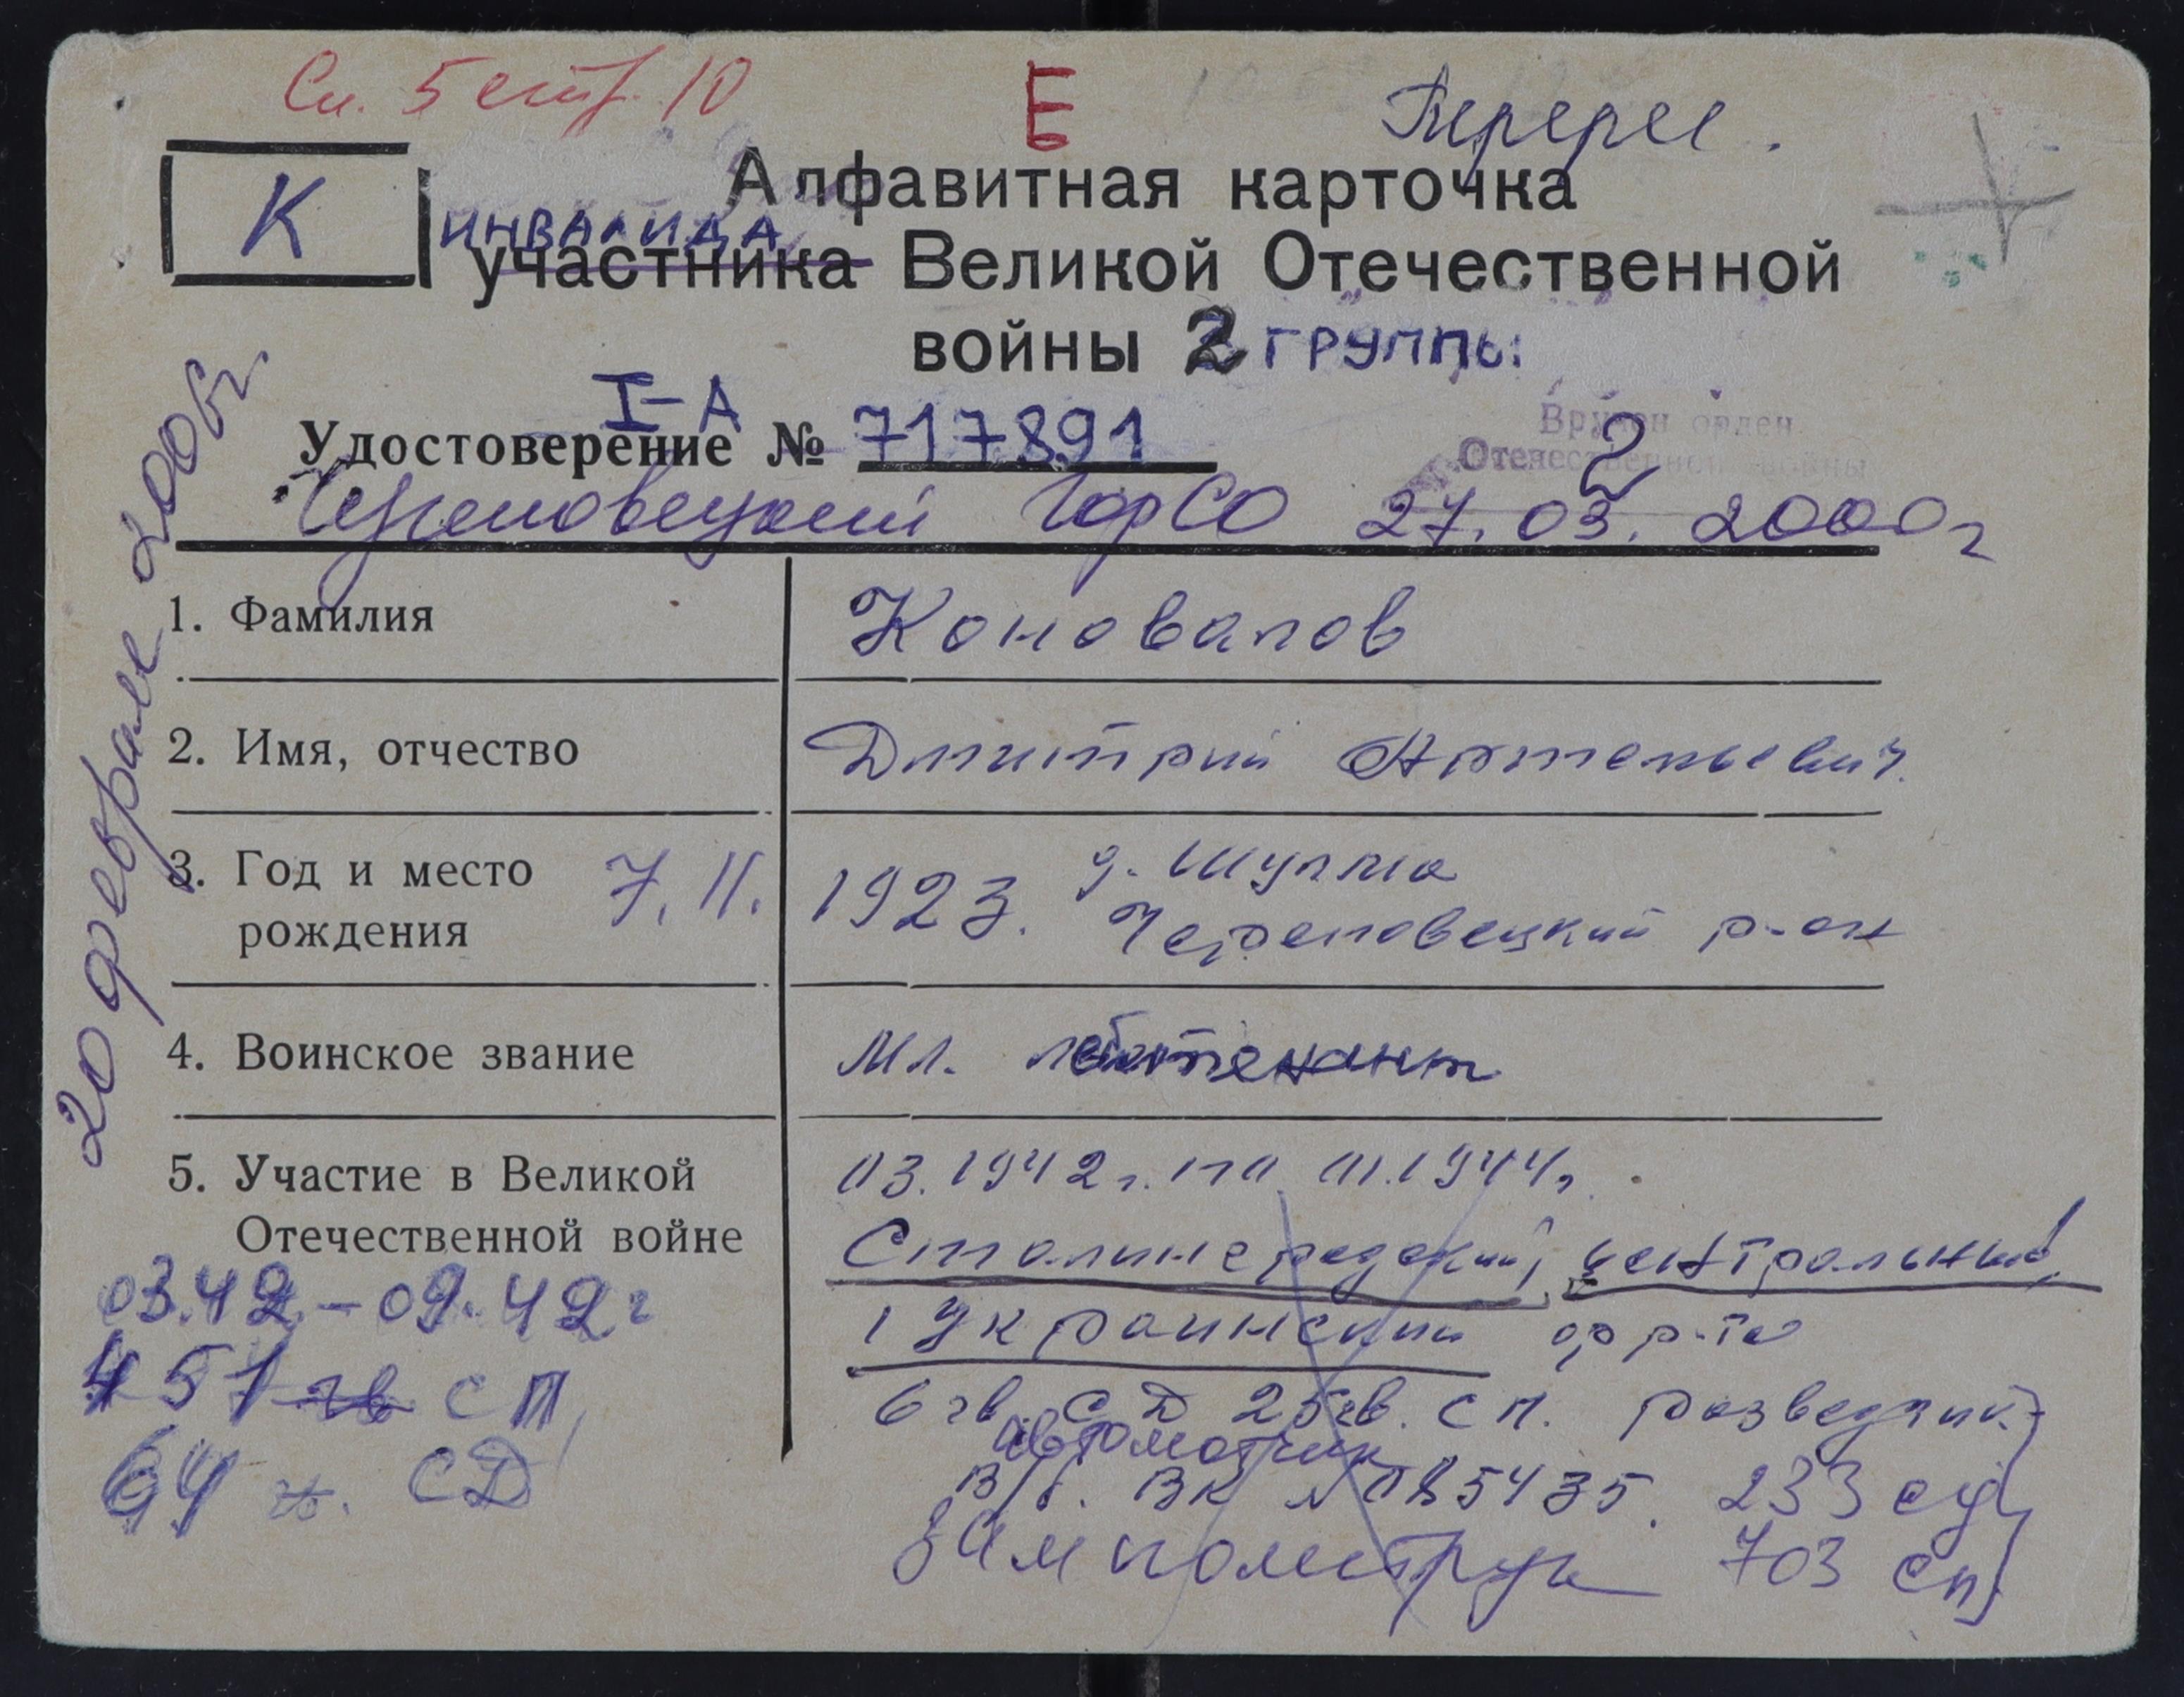 Сп. 5 стр. 10
Е
Перерег.
К
Алфавитная карточка
инвалида
участника Великой Отечественной
войны 2 группы
I-А
Удостоверение № 717891
Вручен орден
Отечественной войны
2
Череповецкий ГорСО 27.03.2000г
20 февраля 2006г.
1. Фамилия Коновалов
2. Имя, отчество Дмитрий Артемьевич.
3. Год и место рождения 7.11. 1923. д. Шулма
Череповецкий р-он
4. Воинское звание Мл. лейтенант
5. Участие в Великой 03.1942г. по 11.1944г.
Отечественной войне Сталинградский, центральный,
03.42 - 09.42г 1 Украинский фр-т
451 гв СП 6 гв. СД 25 гв. СП. разведчик
автоматчик
64 СД В/б. ВК №085435. 233 сд
замполитрук 703 сп